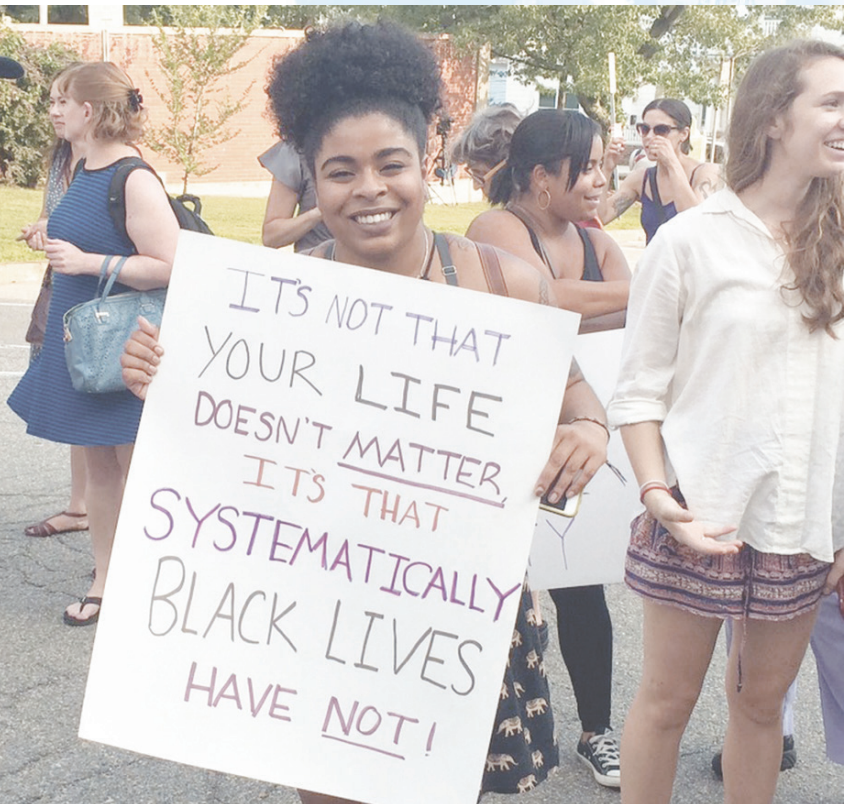 IT'S NOT THAT
YOUR LIFE
DOESN'T MATTER,
IT'S THAT
SYSTEMATICALLY
BLACK LIVES
HAVE NOT!
Y